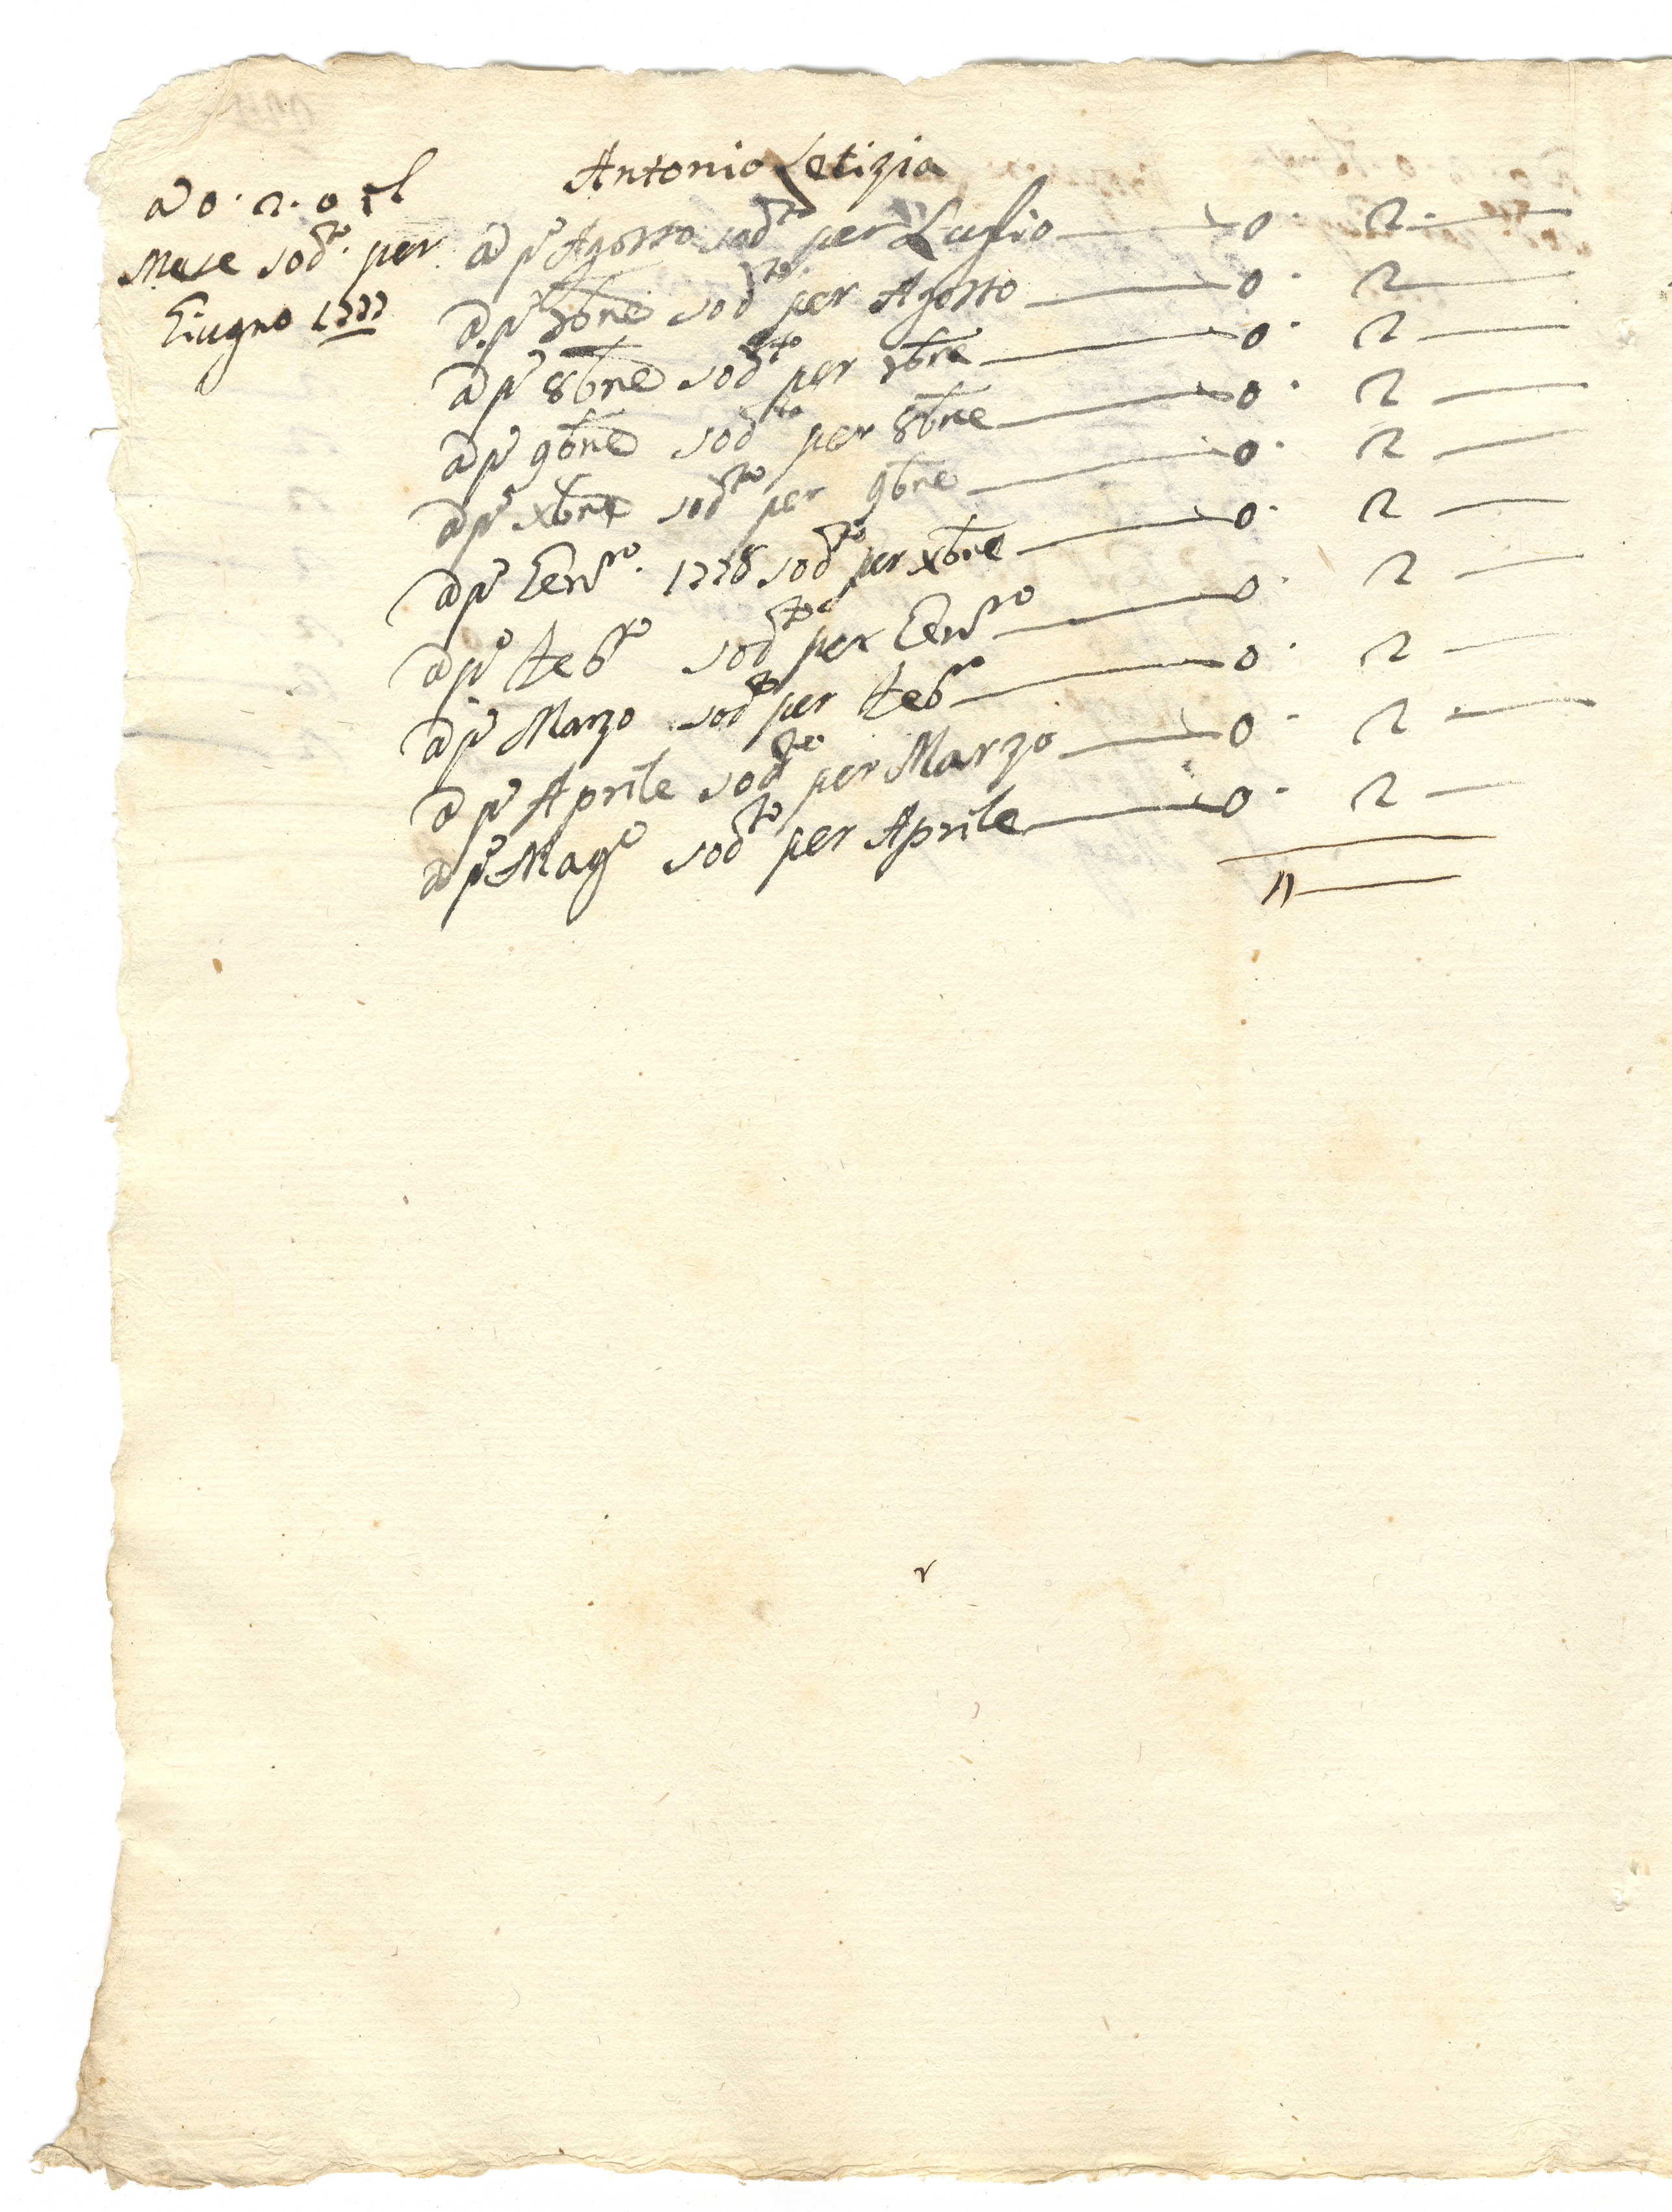 Antonio Letizia
a 0. 2. 0 il
Mese sod.to per
Giugno 1777
a p.o Agosto sod.to per Luglio — 0. 2. —
a p.o 7bre sod.to per Agosto — 0. 2 —
a p.o 8bre sod.to per 7bre — 0. 2 —
a p.o 9bre sod.to per 8bre — 0. 2 —
a p.o xbre sod.to per 9bre — 0. 2 —
a p.o Gen.ro 1778 sod.to per xbre — 0. 2 —
a p.o Feb.ro sod.to per Gen.ro — 0. 2 —
a p.o Marzo sod.to per Feb.ro — 0. 2 —
a p.o Aprile sod.to per Marzo — 0. 2 —
a p.o Mag.o sod.to per Aprile — 0. 2 —